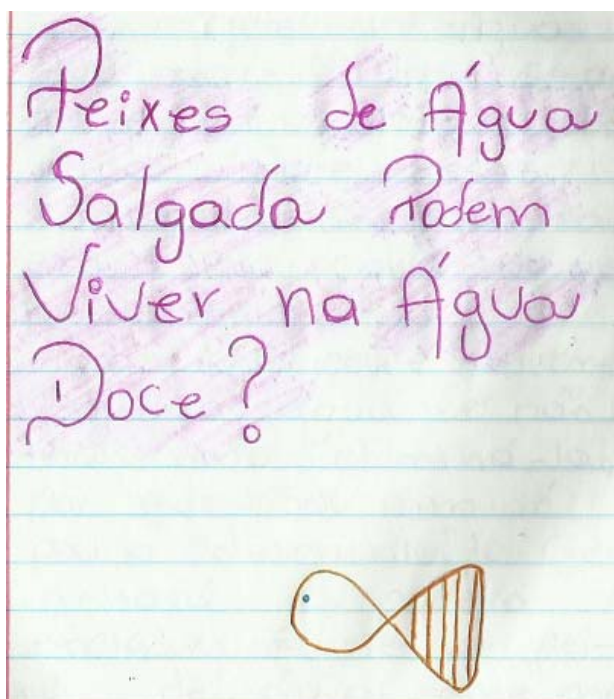 Peixes de Água
Salgada Podem
Viver na Água
Doce?